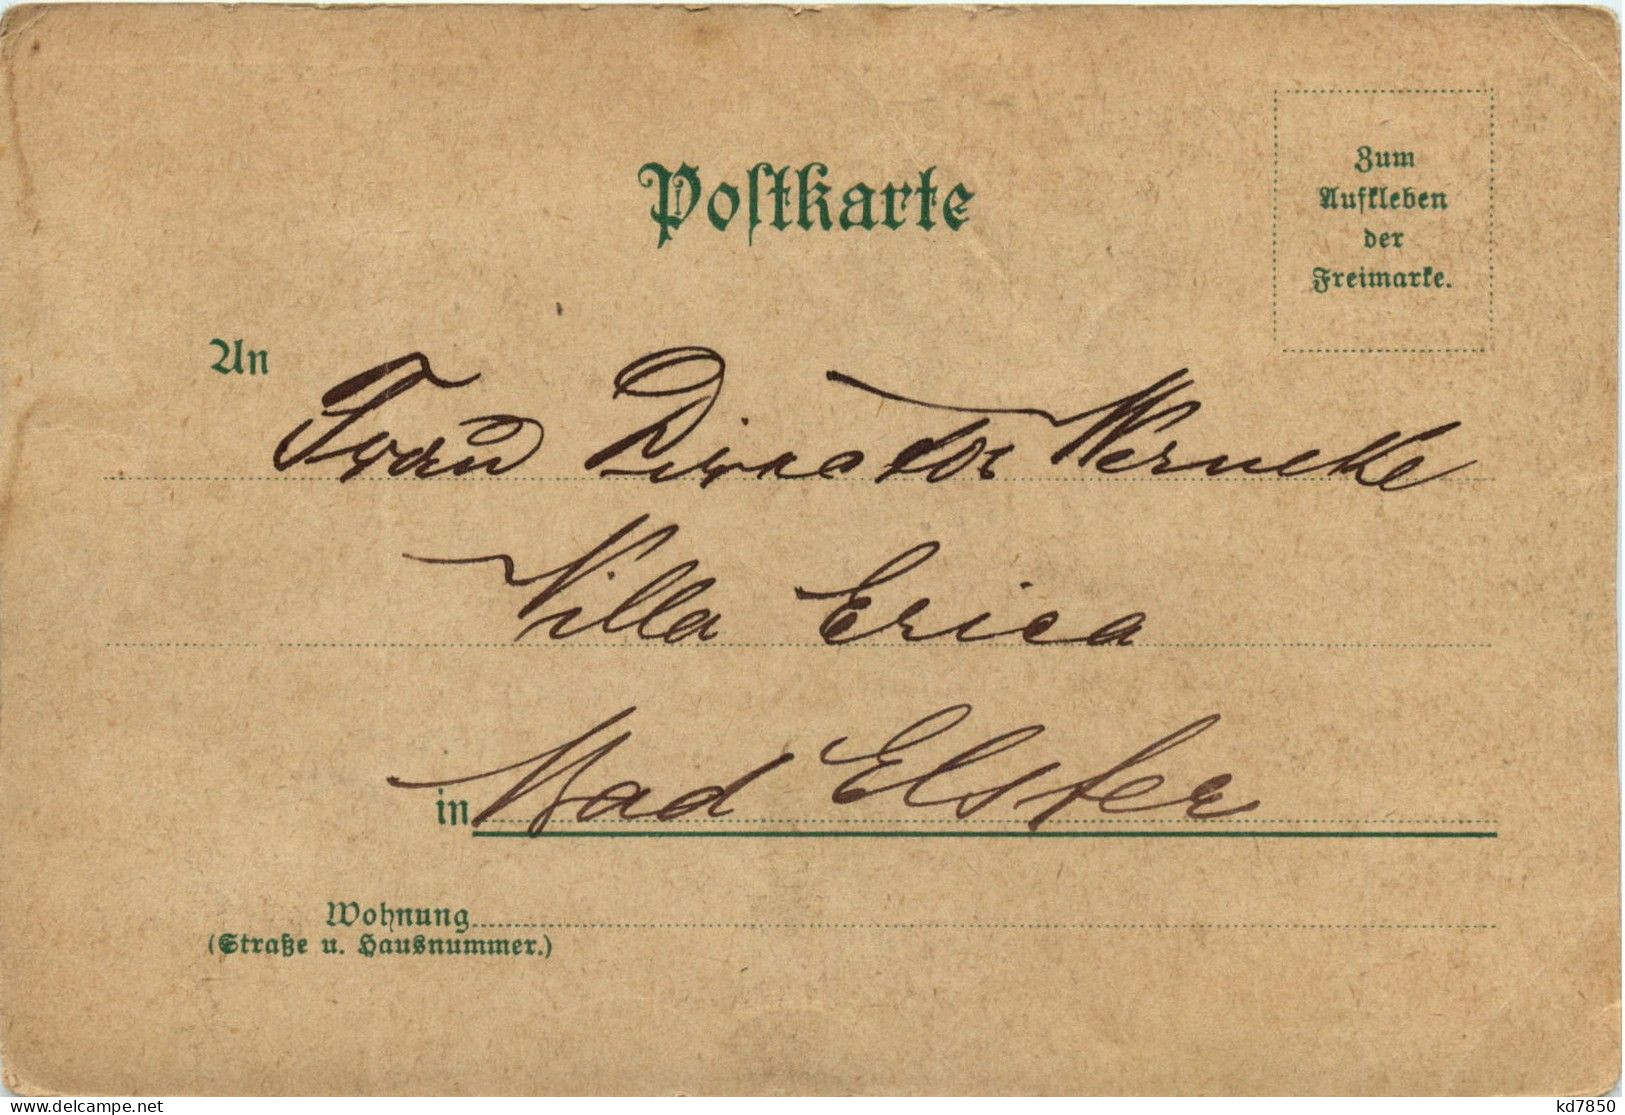 Postkarte
Zum
Aufkleben
der
Freimarke.
An
Frau Director Wernecke
Villa Erica
in Bad Elster
Wohnung
(Straße u. Hausnummer.)
delcampe.net
kd7850